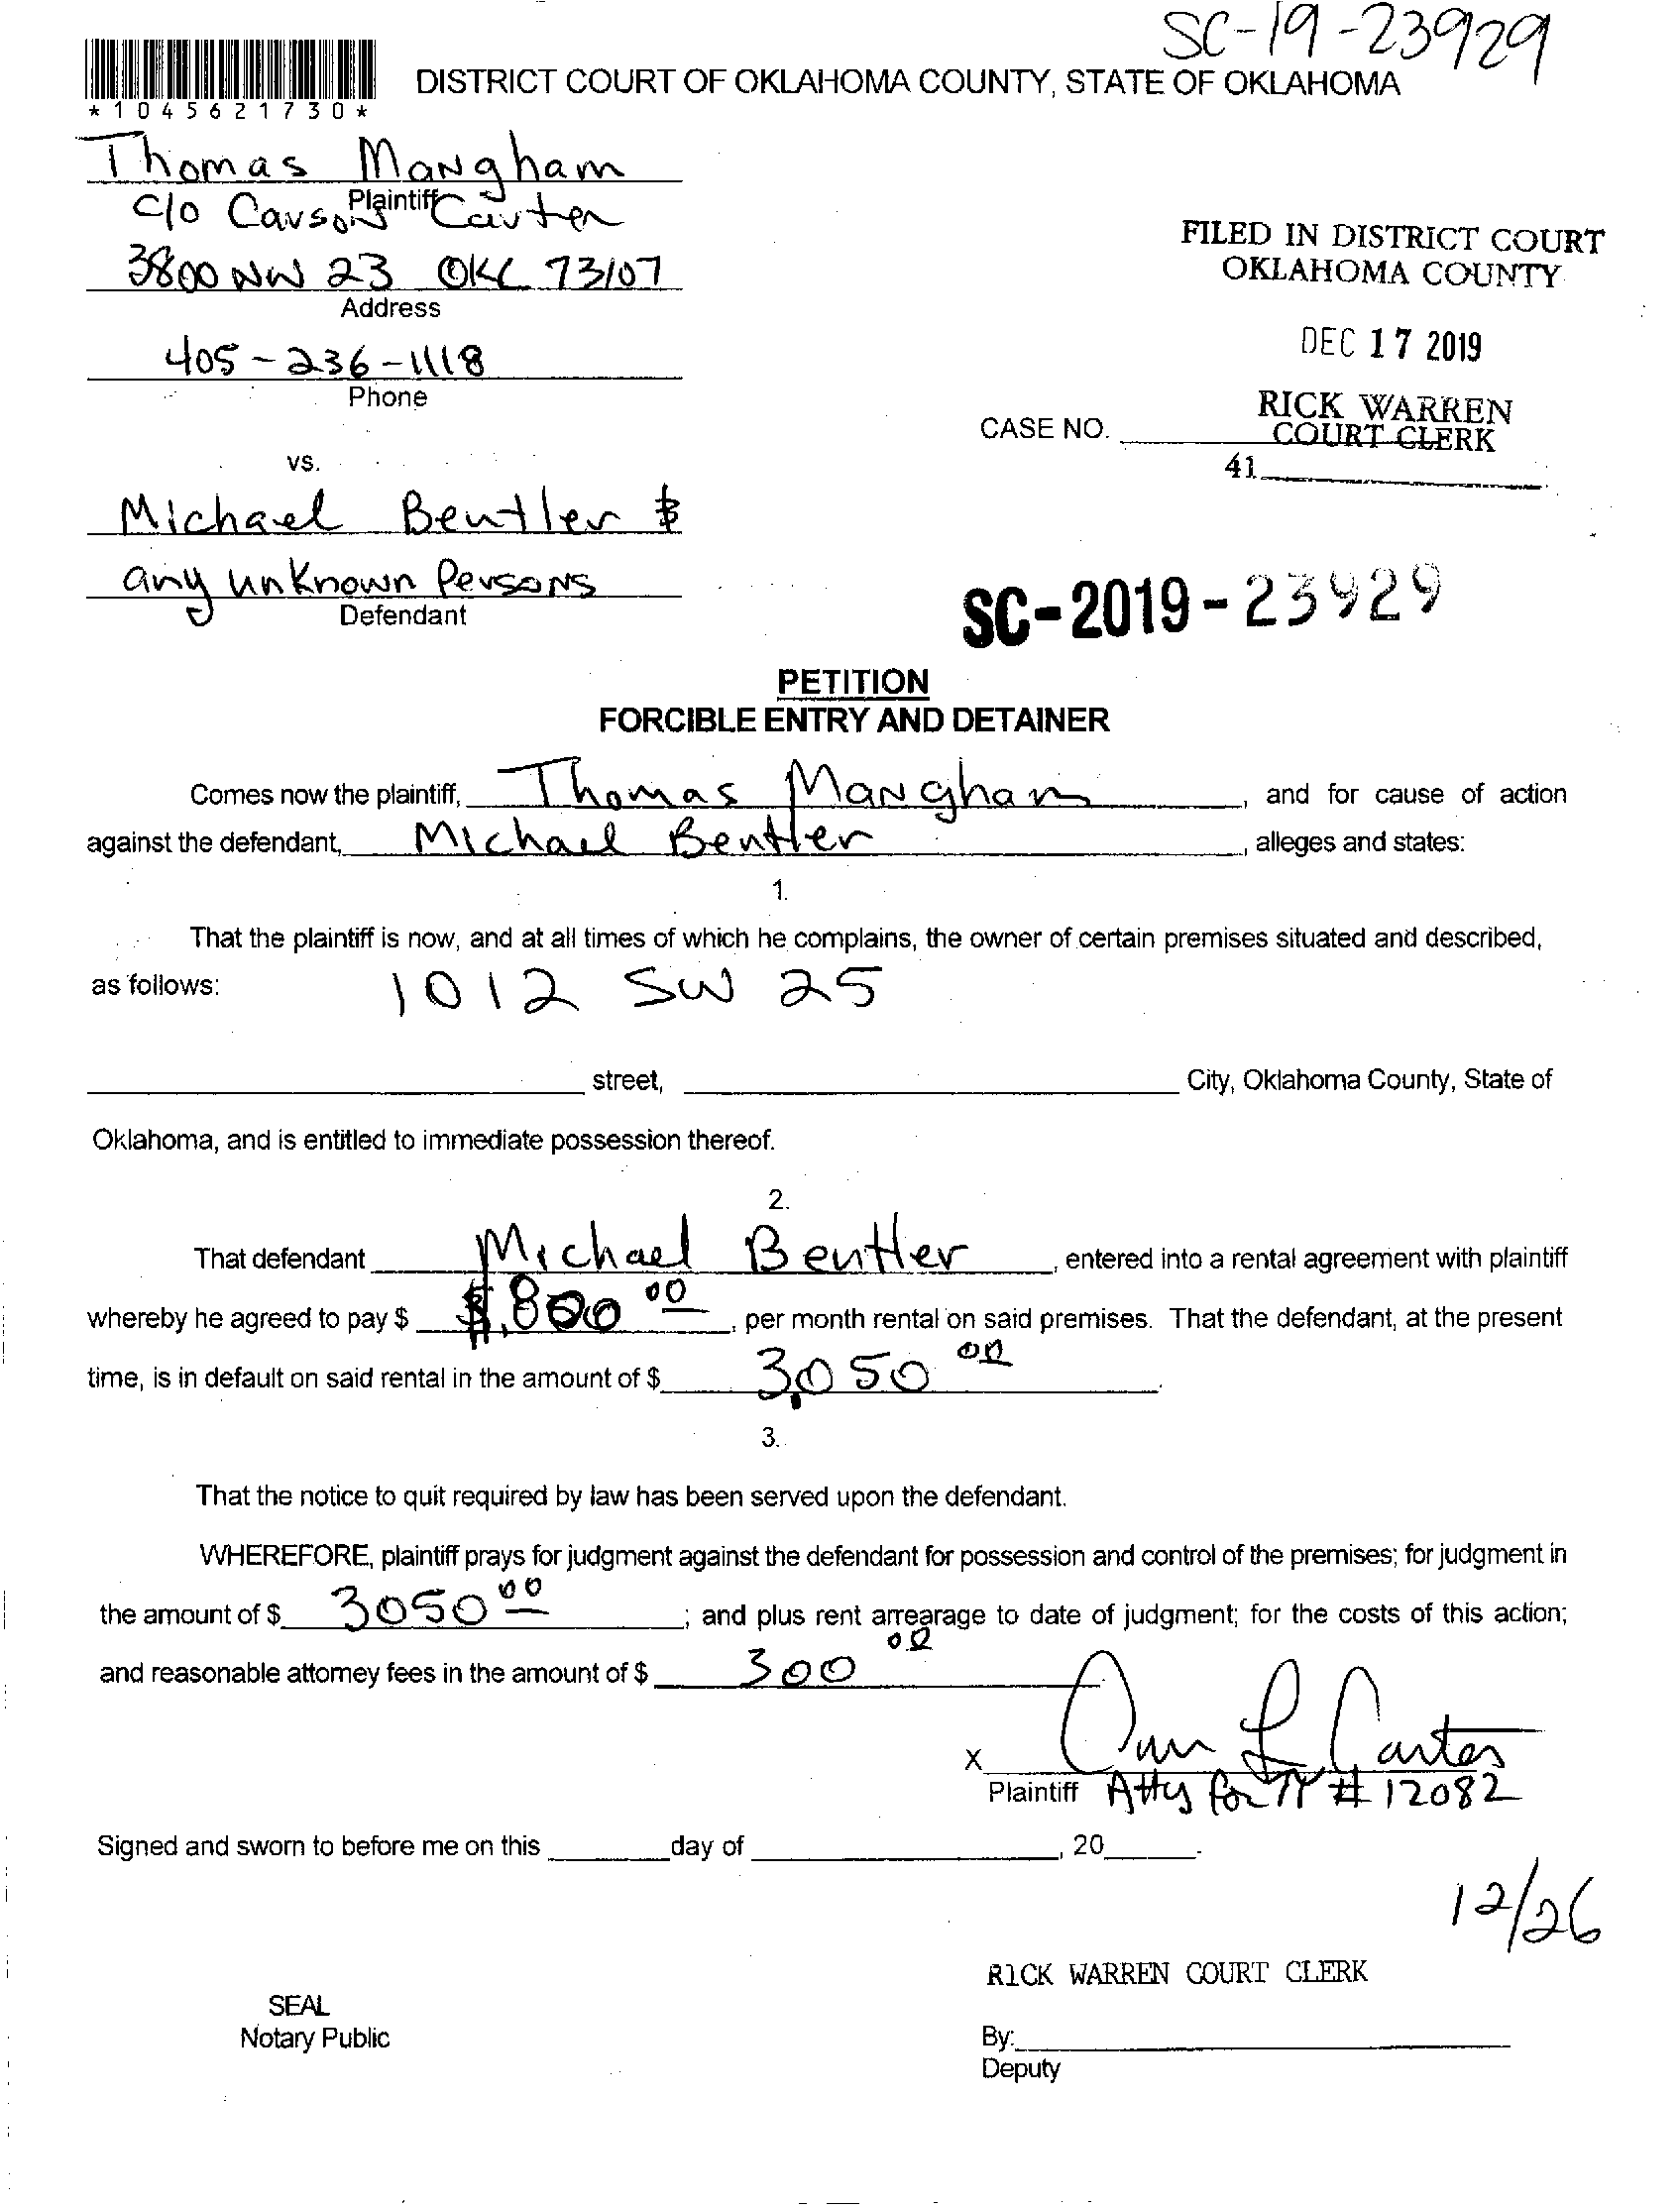 SC-19-23929
DISTRICT COURT OF OKLAHOMA COUNTY, STATE OF OKLAHOMA
*1045621730*
Thomas Mangham
Plaintiff
c/o Carson Carter
3800 NW 23 OKC 73107
Address
405-236-1118
Phone
FILED IN DISTRICT COURT
OKLAHOMA COUNTY
DEC 17 2019
RICK WARREN
COURT CLERK
CASE NO.
41
vs.
Michael Bentler &
any unknown Persons
Defendant
SC-2019-23929
PETITION
FORCIBLE ENTRY AND DETAINER
Comes now the plaintiff, Thomas Mangham, and for cause of action
against the defendant, Michael Bentler, alleges and states:
1.
That the plaintiff is now, and at all times of which he complains, the owner of certain premises situated and described,
as follows: 1012 SW 25
street, City, Oklahoma County, State of
Oklahoma, and is entitled to immediate possession thereof.
2.
That defendant Michael Bentler, entered into a rental agreement with plaintiff
whereby he agreed to pay $ $800 00, per month rental on said premises. That the defendant, at the present
time, is in default on said rental in the amount of $ 3,050 00.
3.
That the notice to quit required by law has been served upon the defendant.
WHEREFORE, plaintiff prays for judgment against the defendant for possession and control of the premises; for judgment in
the amount of $ 3050 00; and plus rent arrearage to date of judgment; for the costs of this action;
and reasonable attorney fees in the amount of $ 300 00
X Ann L Carter
Plaintiff Atty for π # 12082
Signed and sworn to before me on this day of , 20 .
12/26
RICK WARREN COURT CLERK
SEAL
Notary Public
By:
Deputy